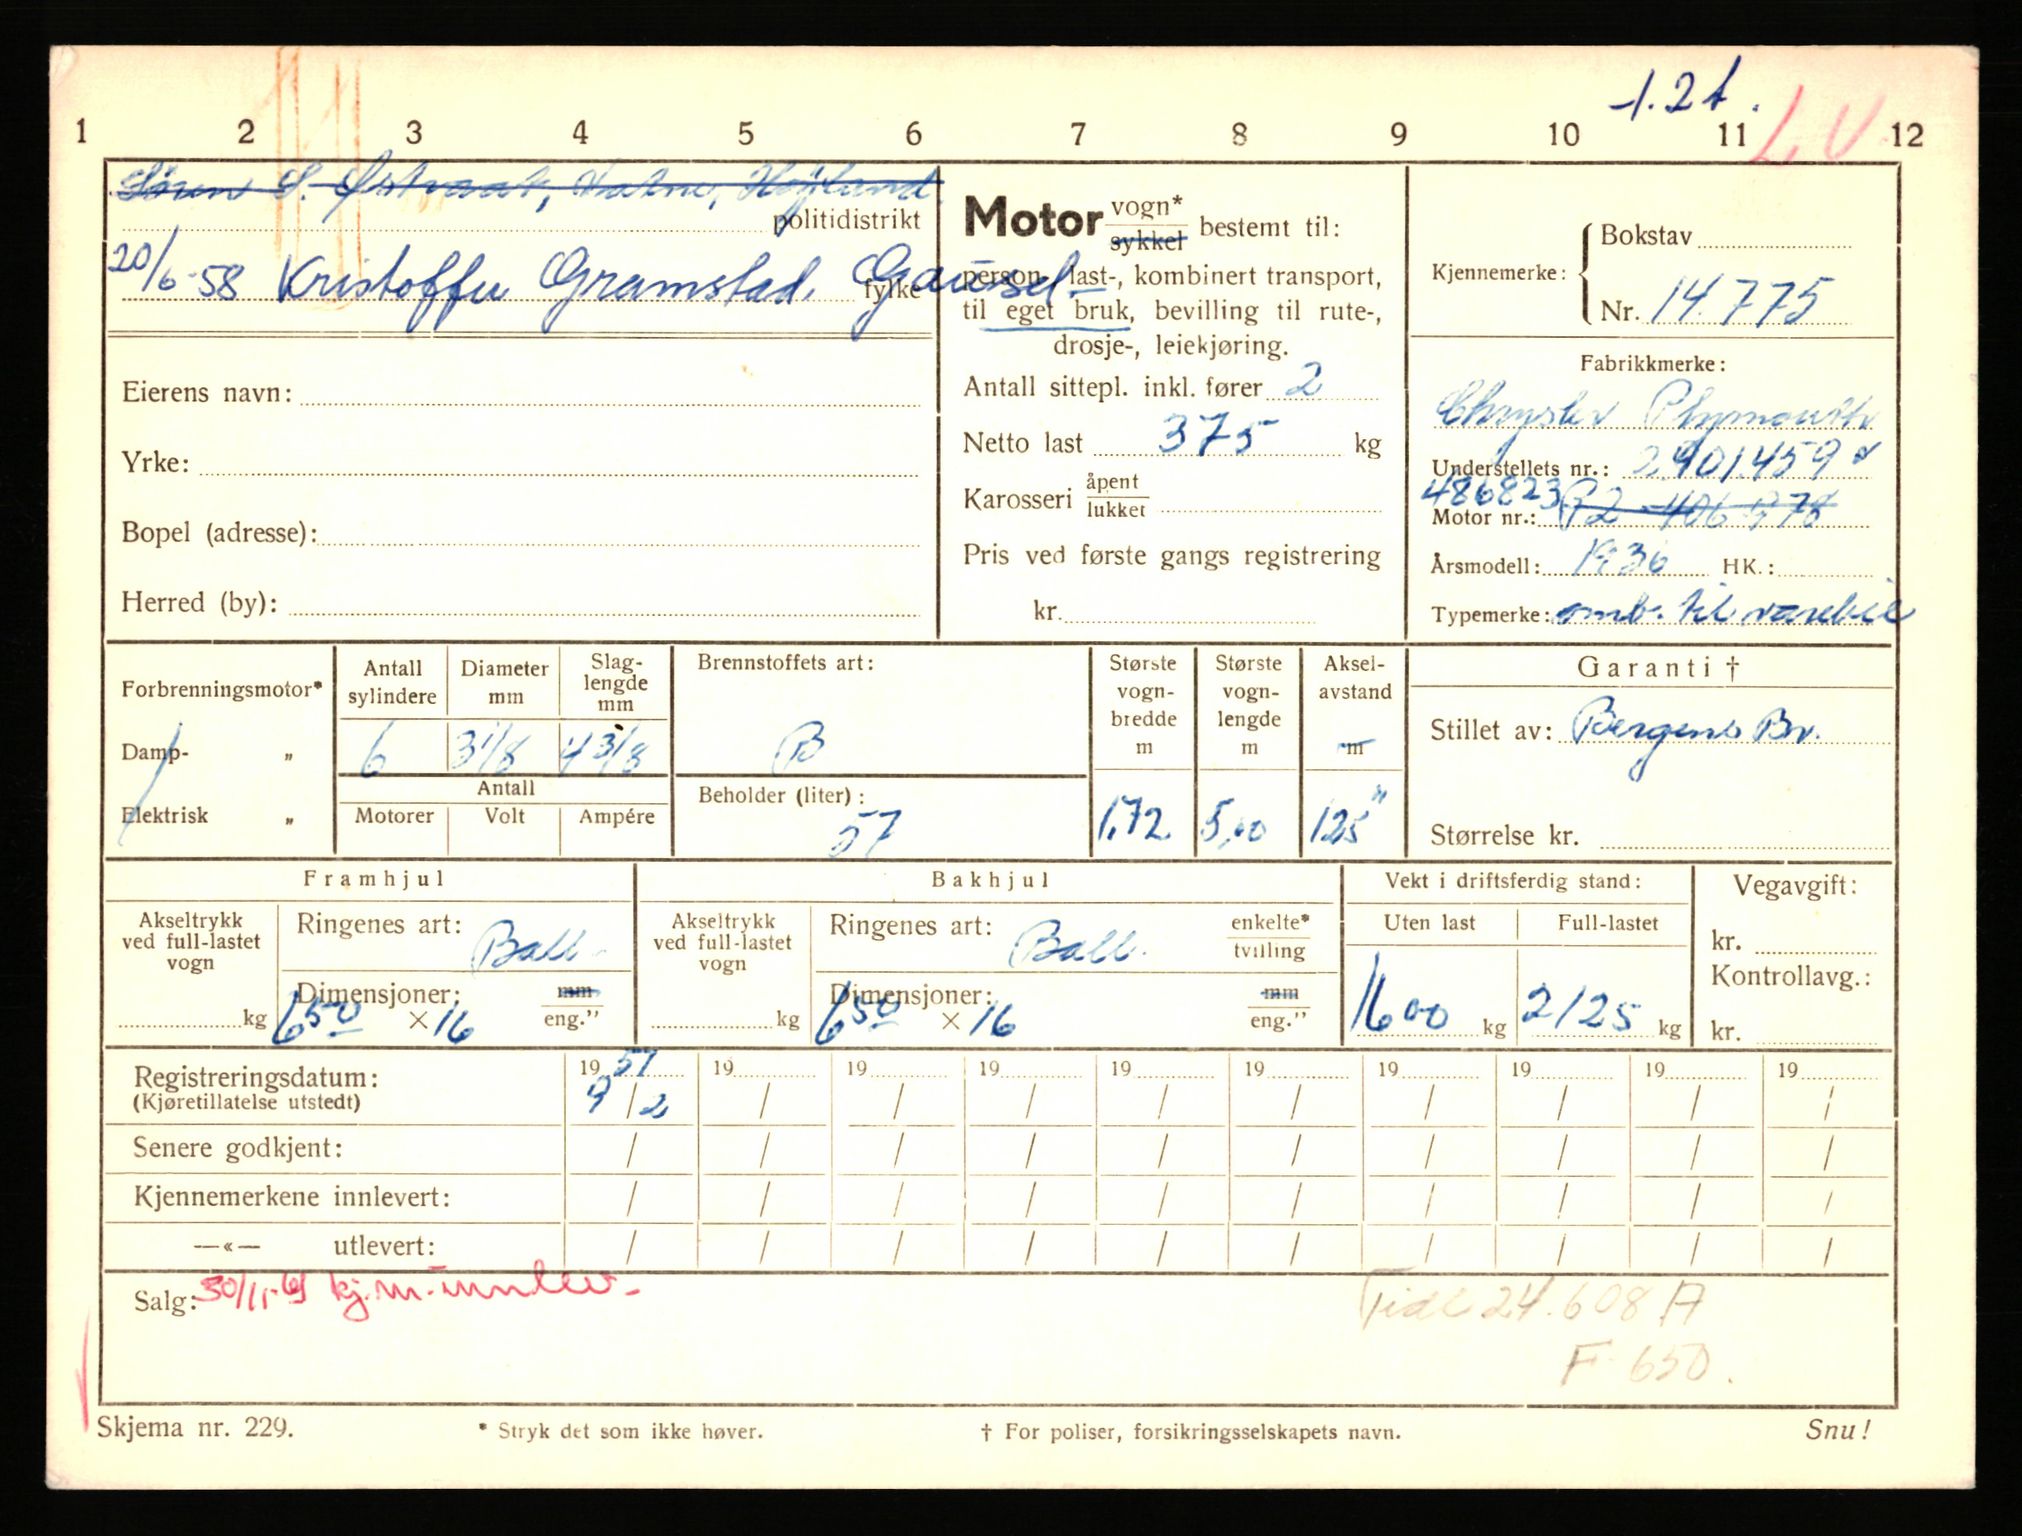 -1.2t.
L. V
1 2 3 4 5 6 7 8 9 10 11 12
Søren S. Østraat, Vatne, Høyland
politidistrikt
20/6-58 Kristoffer Gramstad, Gausel
fylke
Eierens navn:
Yrke:
Bopel (adresse):
Herred (by):
Motor vogn* sykkel bestemt til:
person-, last-, kombinert transport,
til eget bruk, bevilling til rute-,
drosje-, leiekjøring.
Antall sittepl. inkl. fører 2
Netto last 375 kg
Karosseri åpent lukket
Pris ved første gangs registrering
kr.
Kjennemerke: Bokstav
Nr. 14.775
Fabrikkmerke:
Chrysler Plymouth
Understellets nr.: 2.901.459
486823
Motor nr.: P2
Årsmodell: 1936 HK.:
Typemerke: omb. til varebil
Forbrenningsmotor*
Damp- "
Elektrisk "
Antall sylindere
6
Diameter mm
3 1/8
Slag-lengde mm
4 3/8
Antall
Motorer Volt Ampére
Brennstoffets art:
B
Beholder (liter):
57
Største vogn-bredde m
1,72
Største vogn-lengde m
5,00
Aksel-avstand m
125"
Garanti †
Stillet av: Bergens Br.
Størrelse kr.
Framhjul
Akseltrykk ved full-lastet vogn
kg
Ringenes art: Ball.
Dimensjoner: mm eng."
650 × 16
Bakhjul
Akseltrykk ved full-lastet vogn
kg
Ringenes art: Ball. enkelte* tvilling
Dimensjoner: mm eng."
650 × 16
Vekt i driftsferdig stand:
Uten last Full-lastet
1600 kg 2125 kg
Vegavgift:
kr.
Kontrollavg.:
kr.
Registreringsdatum: 1957 19 19 19 19 19 19 19 19 19
(Kjøretillatelse utstedt) 9/2 / / / / / / / / /
Senere godkjent: / / / / / / / / / /
Kjennemerkene innlevert: / / / / / / / / / /
—«— utlevert: / / / / / / / / / /
Salg: 30/11-61 kj.m. innlev.
Tidl 24.608 A
F 650.
Skjema nr. 229. * Stryk det som ikke høver. † For poliser, forsikringsselskapets navn. Snu!